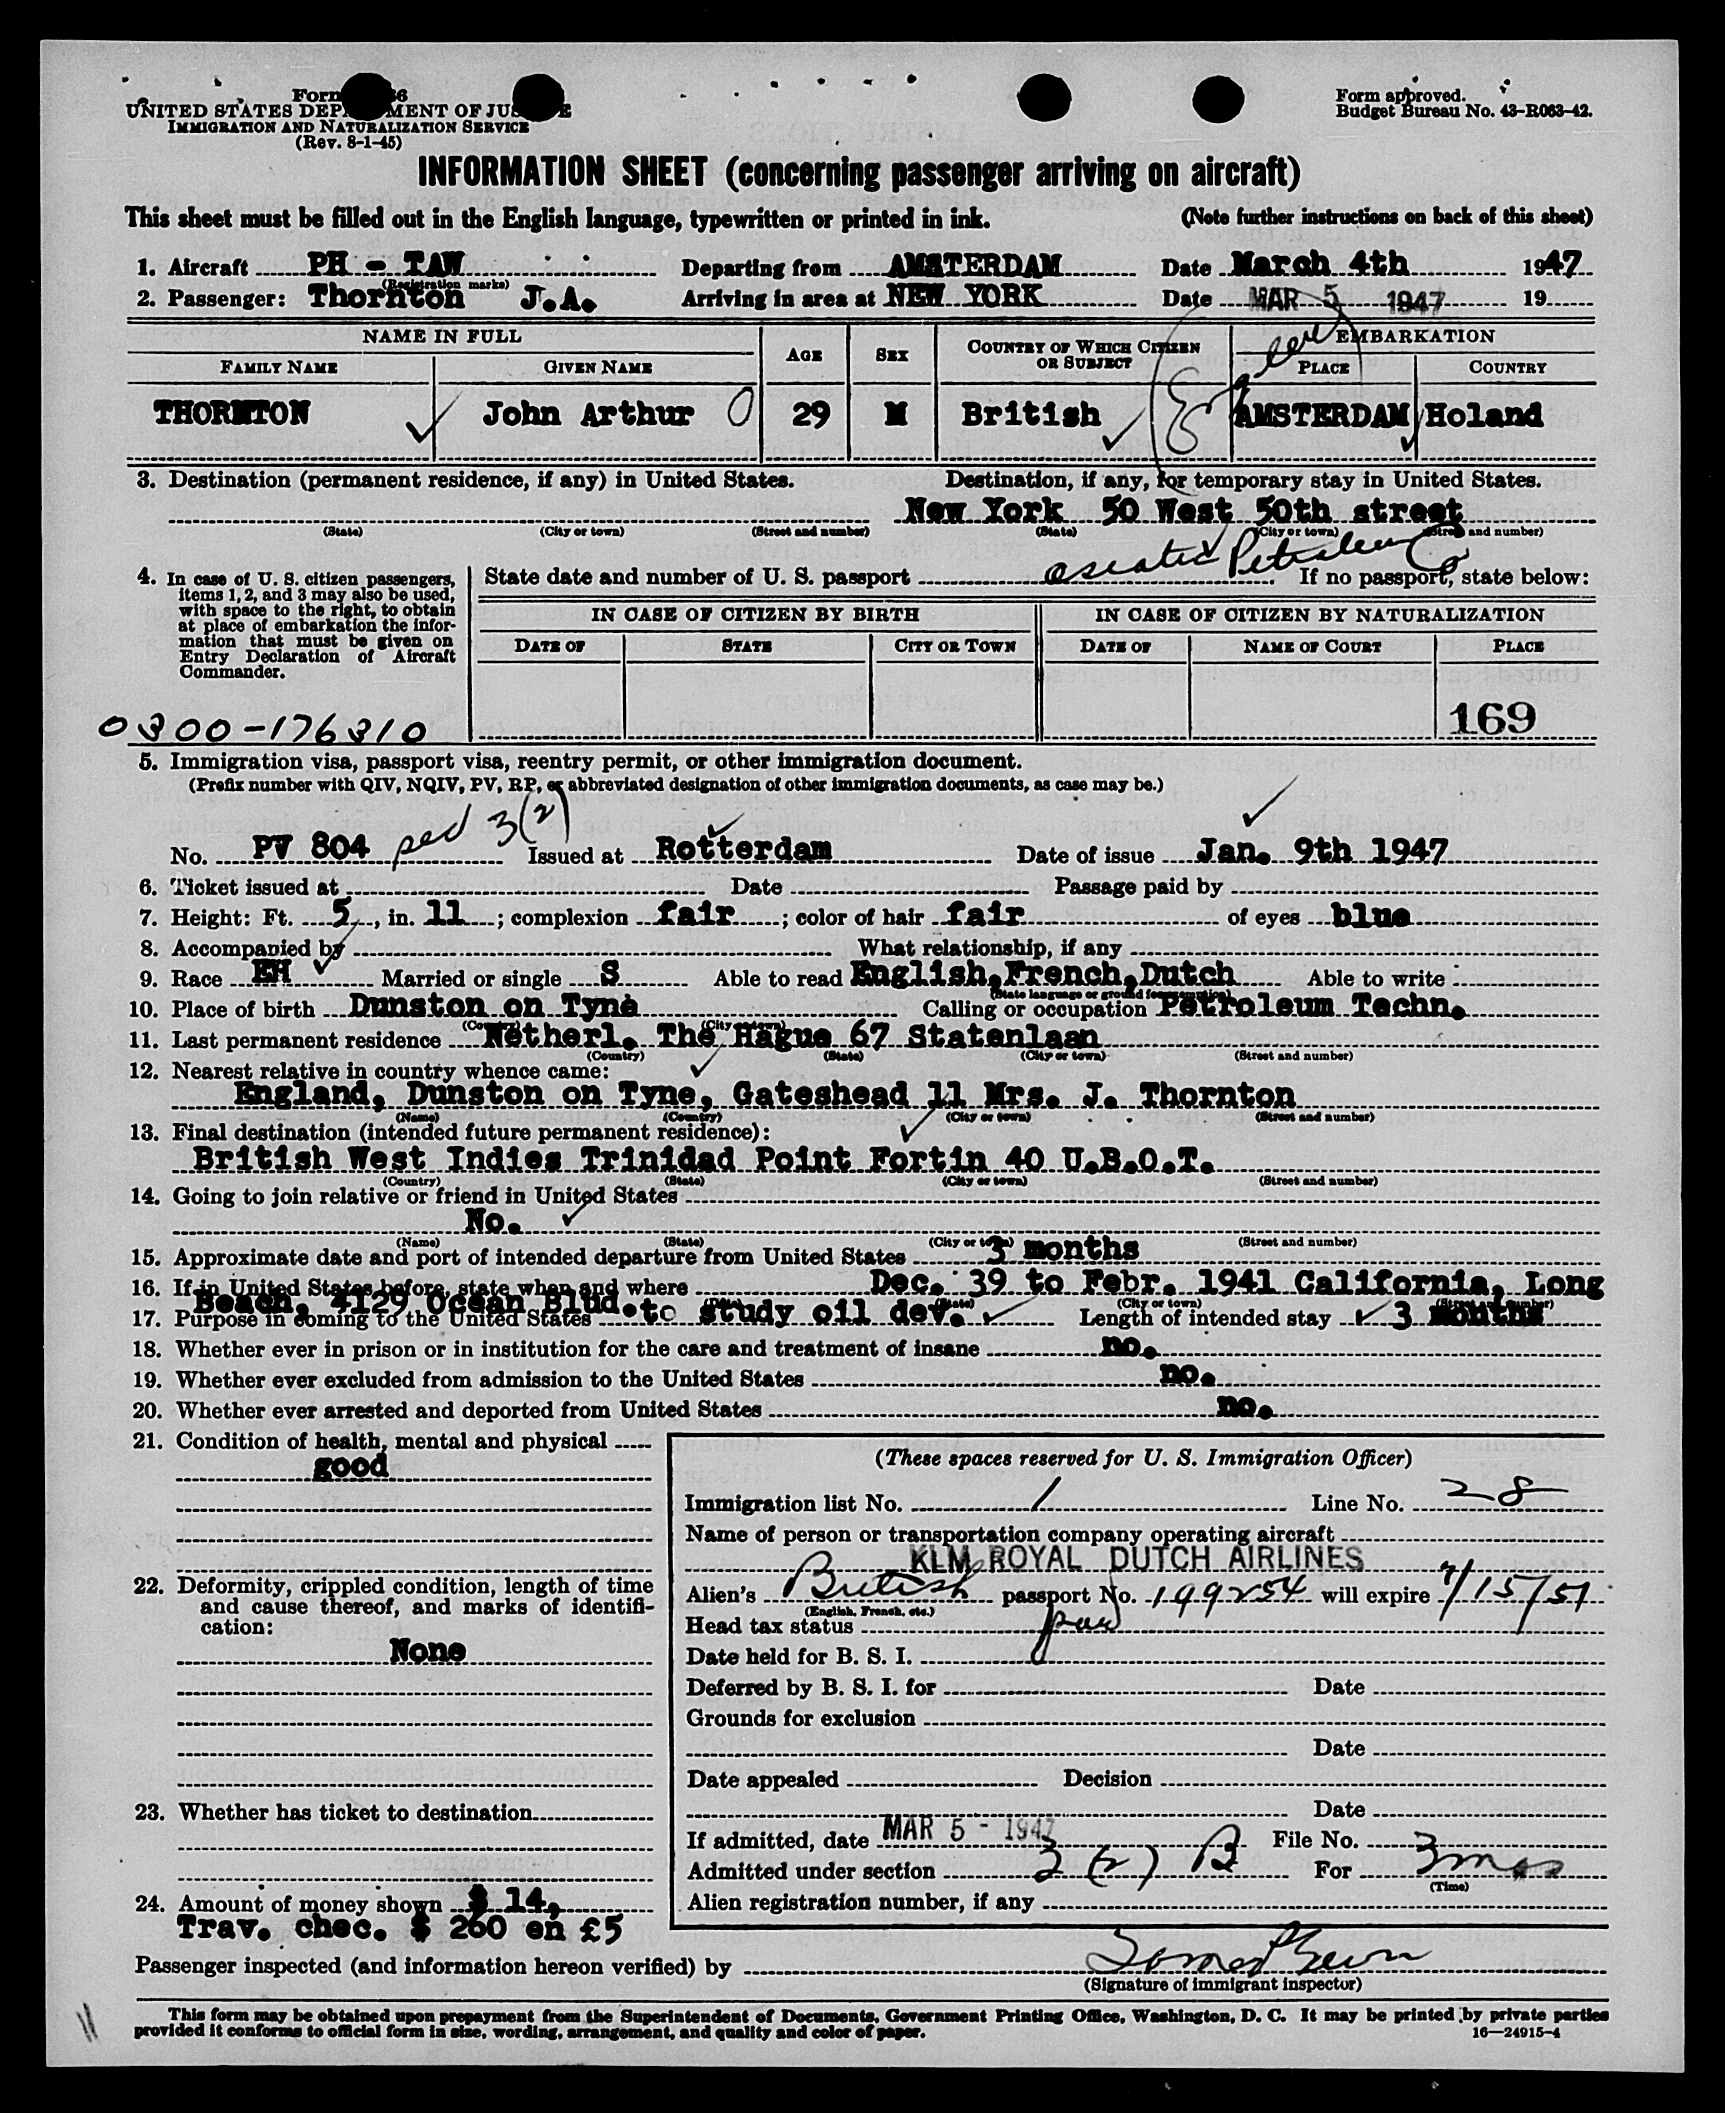 Form 66
UNITED STATES DEPARTMENT OF JUSTICE
IMMIGRATION AND NATURALIZATION SERVICE
(Rev. 8-1-45)
Form approved.
Budget Bureau No. 43-R063-42.
INFORMATION SHEET (concerning passenger arriving on aircraft)
This sheet must be filled out in the English language, typewritten or printed in ink. (Note further instructions on back of this sheet)
1. Aircraft PH - TAW Departing from AMSTERDAM Date March 4th 1947
(Registration marks)
2. Passenger: Thornton J.A. Arriving in area at NEW YORK Date MAR 5 1947 19
NAME IN FULL AGE SEX COUNTRY OF WHICH CITIZEN OR SUBJECT EMBARKATION
FAMILY NAME GIVEN NAME PLACE COUNTRY
THORNTON John Arthur 0 29 M British AMSTERDAM Holand
3. Destination (permanent residence, if any) in United States. Destination, if any, for temporary stay in United States.
New York 50 West 50th street
(State) (City or town) (Street and number) (State) (City or town) (Street and number)
asiatic Petroleum Co
4. In case of U. S. citizen passengers, items 1, 2, and 3 may also be used, with space to the right, to obtain at place of embarkation the information that must be given on Entry Declaration of Aircraft Commander.
State date and number of U. S. passport If no passport, state below:
IN CASE OF CITIZEN BY BIRTH IN CASE OF CITIZEN BY NATURALIZATION
DATE OF STATE CITY OR TOWN DATE OF NAME OF COURT PLACE
0300-176310 169
5. Immigration visa, passport visa, reentry permit, or other immigration document.
(Prefix number with QIV, NQIV, PV, RP, or abbreviated designation of other immigration documents, as case may be.)
No. PV 804 3(2) Issued at Rotterdam Date of issue Jan. 9th 1947
6. Ticket issued at Date Passage paid by
7. Height: Ft. 5, in. 11; complexion fair; color of hair fair of eyes blue
8. Accompanied by What relationship, if any
9. Race EH Married or single S Able to read English,French,Dutch Able to write
(State language or ground for exemption)
10. Place of birth Dunston on Tyne Calling or occupation Petroleum Techn.
(Country) (City or town)
11. Last permanent residence Netherl. The Hague 67 Statenlaan
(Country) (State) (City or town) (Street and number)
12. Nearest relative in country whence came:
England, Dunston on Tyne, Gateshead 11 Mrs. J. Thornton
(Name) (Country) (City or town) (Street and number)
13. Final destination (intended future permanent residence):
British West Indies Trinidad Point Fortin 40 U.B.O.T.
(Country) (State) (City or town) (Street and number)
14. Going to join relative or friend in United States
No.
(Name) (State) (City or town) (Street and number)
15. Approximate date and port of intended departure from United States 3 months
16. If in United States before, state when and where Dec. 39 to Febr. 1941 California, Long
Beach, 4129 Ocean Blud.
(State) (City or town) (Street and number)
17. Purpose in coming to the United States to study oil dev. Length of intended stay 3 months
18. Whether ever in prison or in institution for the care and treatment of insane no.
19. Whether ever excluded from admission to the United States no.
20. Whether ever arrested and deported from United States no.
21. Condition of health, mental and physical
good
22. Deformity, crippled condition, length of time and cause thereof, and marks of identification:
None
23. Whether has ticket to destination
24. Amount of money shown $ 14,
Trav. chec. $ 260 en £5
(These spaces reserved for U. S. Immigration Officer)
Immigration list No. 1 Line No. 28
Name of person or transportation company operating aircraft
KLM ROYAL DUTCH AIRLINES
Alien's British passport No. 199254 will expire 7/15/51
(English, French, etc.)
Head tax status
Date held for B. S. I.
Deferred by B. S. I. for Date
Grounds for exclusion
Date
Date appealed Decision
Date
If admitted, date MAR 5 - 1947 File No.
Admitted under section 3 (2) B For 3 mos
(Time)
Alien registration number, if any
Passenger inspected (and information hereon verified) by
(Signature of immigrant inspector)
This form may be obtained upon prepayment from the Superintendent of Documents, Government Printing Office, Washington, D. C. It may be printed by private parties
provided it conforms to official form in size, wording, arrangement, and quality and color of paper. 16—24915-4